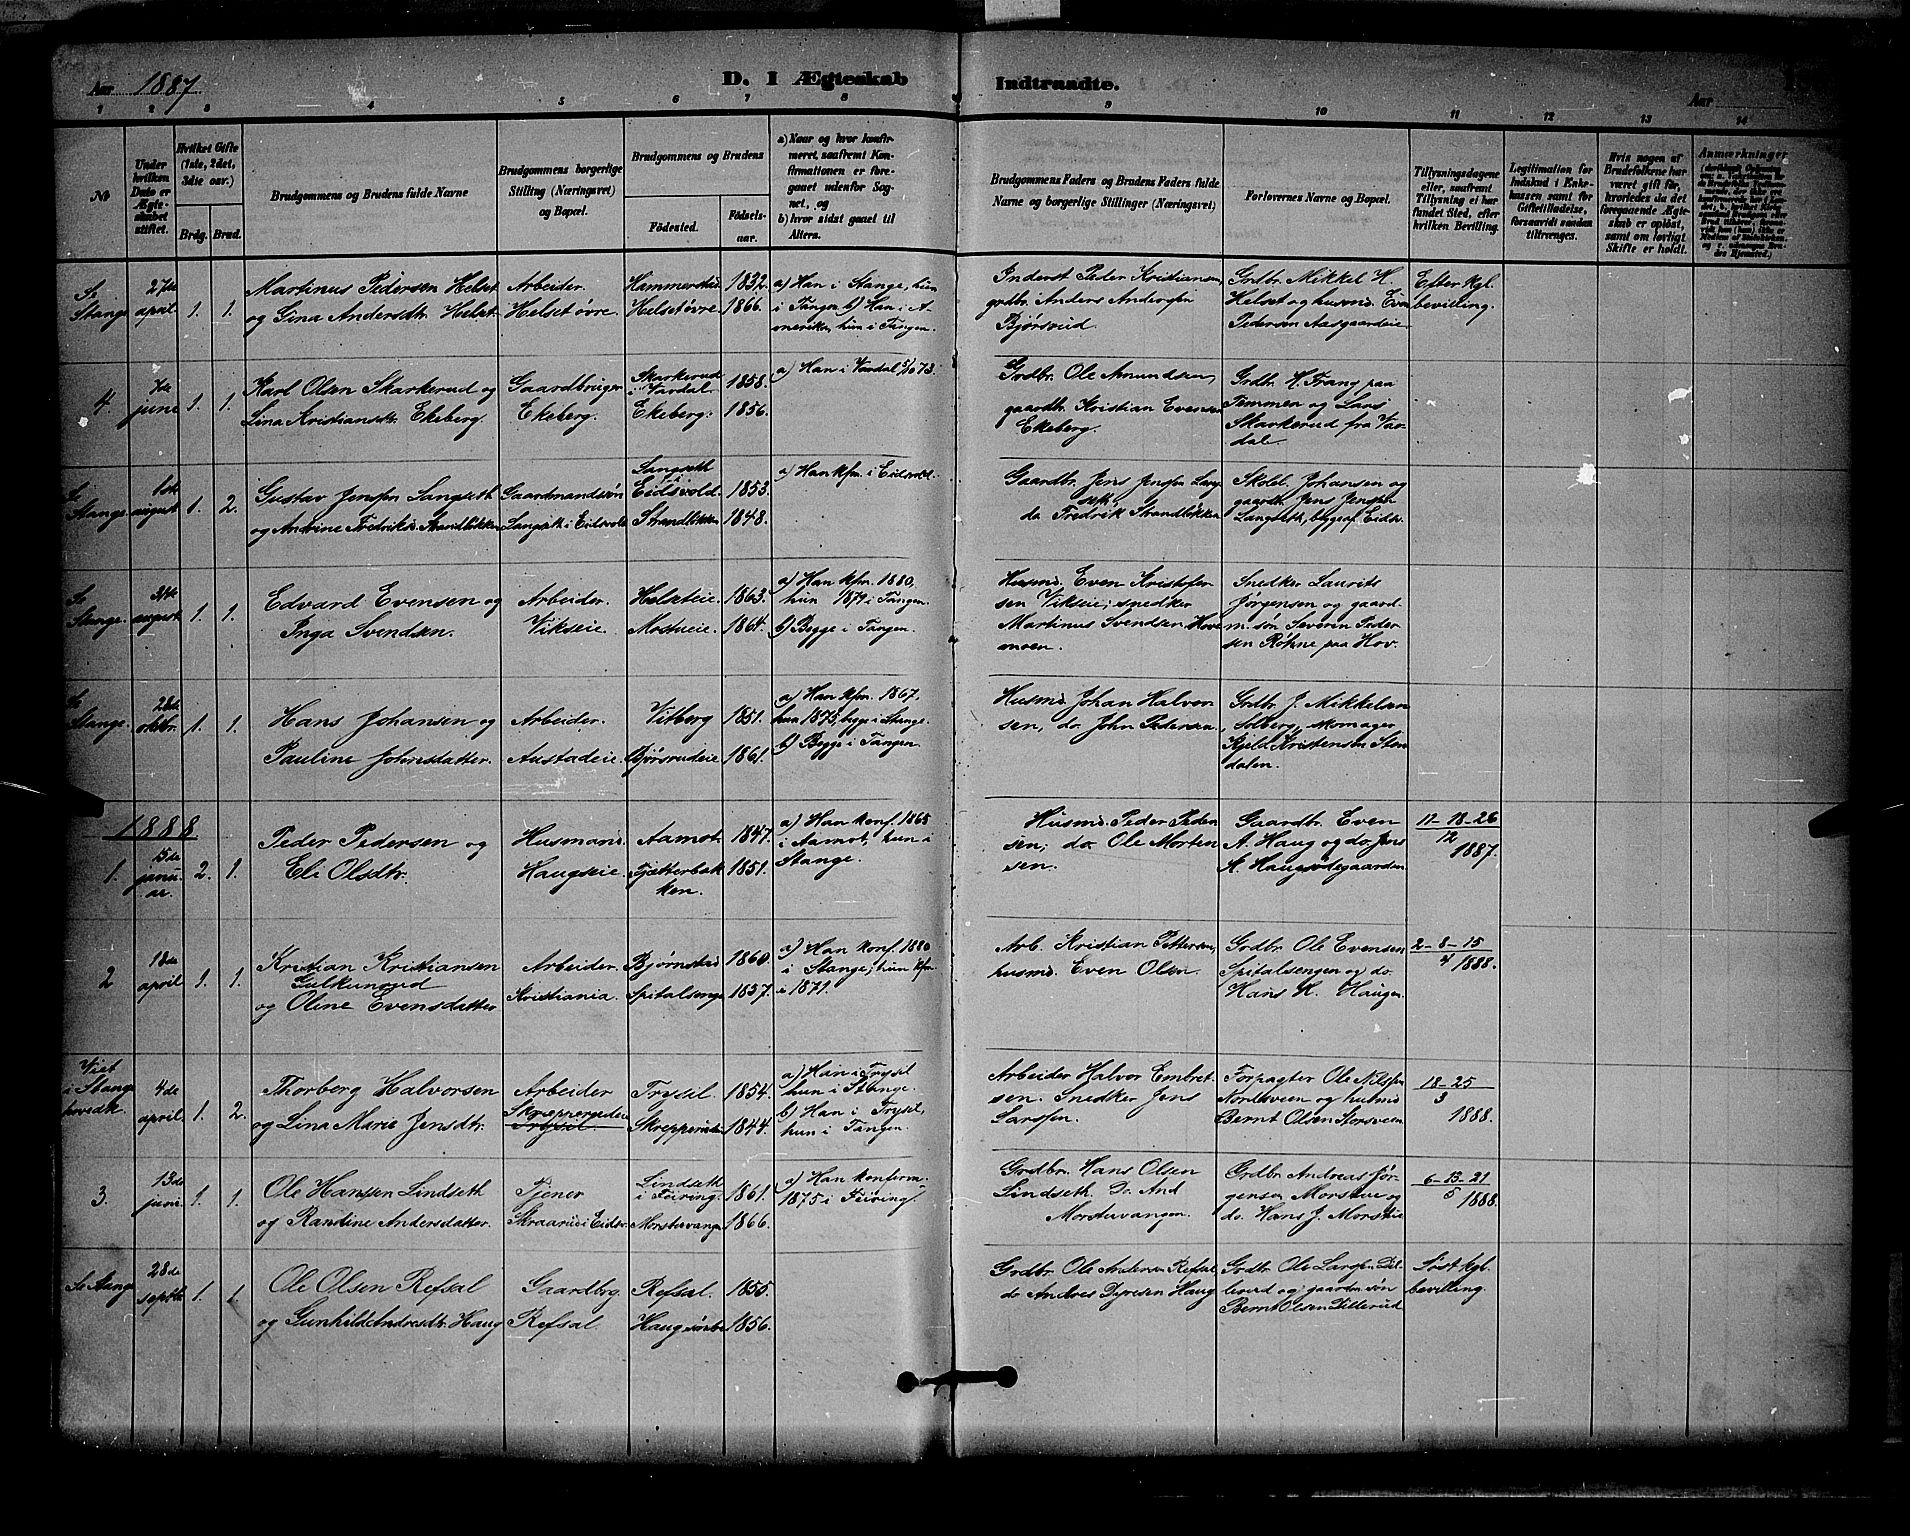 Aar 1887 D. I Ægteskab Indtraadte. Aar
1 2 3 4 5 6 7 8 9 10 11 12 13 14
No
Under hvilken Dato er Ægteskabet stiftet.
Hvilket Gifte (1ste, 2det, 3die osv.)
Brdg. Brud.
Brudgommens og Brudens fulde Navne
Brudgommens borgerlige Stilling (Næringsvei) og Bopæl.
Brudgommens og Brudens
Fødested. Fødselsaar.
a) Naar og hvor konfirmeret, saafremt Konfirmationen er foregaaet udenfor Sognet, og
b) hvor sidst gaaet til Alters.
Brudgommens Faders og Brudens Faders fulde Navne og borgerlige Stillinger (Næringsvei)
Forlovernes Navne og Bopæl.
Tillysningsdagene eller, saafremt Tillysning ei har fundet Sted, efter hvilken Bevilling.
Legitimation for Indskud i Enkekassen samt for Giftetilladelse, forsaavidt saadan tiltrænges.
Hvis nogen af Brudefolkene har været gift før, hvorledes da det foregaaende Ægteskab er opløst, samt om lovligt Skifte er holdt.
Anmærkninger
Se Stange
27de april
1. 1.
Martinus Pedersen Helset
og Gina Andersdtr. Helset.
Arbeider.
Helset øvre.
Hemmerstad 1832
Helset øvre 1866.
a) Han i Stange, hun
i Tangen b) Han i A-
merika, hun i Tangen.
Inderst Peder Kristiansen
grdbr. Anders Andersen
Bjørsrud.
Grdbr. Mikkel H.
Helset og husmd. Even
Pedersen Aasgaardeie.
Efter kgl.
bevilling.
4.
7de june
1. 1.
Karl Olsen Skarkerud og
Lina Kristiansdtr. Ekeberg.
Gaardbruger
Ekeberg.
Skarkerud
i Vardal. 1858.
Ekeberg. 1856.
a) Han i Vardal 5/10 73.
Grdbr. Ole Amundsen,
gaardbr. Kristian Evensen
Ekeberg.
Grdbr. H. Frang paa
Temmen og Lars
Skarkerud fra Var-
dal.
Se Stange.
1ste august
1. 2.
Gustav Jensen Langseth
og Andrine Fredriksd. Strandløkken
Gaardmandssøn
Langseth i Eidsvold
Langseth
i Eidsvold. 1853.
Strandløkken 1848.
a) Han kfm. i Eidsvold.
Gaardbr. Jens Jensen Lang-
seth
do Fredrik Strandløkken
Skold. Johansen og
gaardbr. Jens Jensen
Langseth, begge af Eidsv.
Se Stange.
august
1. 1.
Edvard Evensen og
Inga Svendsen.
Arbeider.
Vikseie.
Helseteie. 1863.
Mostueie. 1864.
a) Han kfm. 1880,
hun 1879 i Tangen.
b) Begge i Tangen.
Husmd. Even Kristofer-
sen Vikseie; snedker
Martinus Svendsen Hove-
moen.
Snedker Laurits
Jørgensen og gaard-
m. søn Severin Peder-
sen Røhne paa Hov.
Se Stange.
28de oktbr.
1. 1.
Hans Johansen og
Pauline Johnsdatter.
Arbeider.
Austadeie.
Vitberg 1851.
Bjørsrudeie 1861.
a) Han kfm. 1867,
hun 1875, begge i Stange.
b) Begge i Tangen.
Husmd. Johan Halvor-
sen, do. John Pedersen
Grdbr. J. Mikkelsen
Solberg, skomager
Kjeld Kristensen Sten-
dalen.
1888
1.
15de januar.
2. 1.
Peder Pedersen og
Eli Olsdtr.
Husmand
Haugseie.
Aamot. 1847.
Fjætterbak-
ken. 1851.
a) Han konf. 1865
i Aamot, hun i
Stange.
Husmd. Peder Peder-
sen; do. Ole Morten-
sen.
Gaardbr. Even
A. Haug og do Jens
A. Haugsødegaarden
11-18-26
12 1887.
2
18de april
1. 1.
Kristian Kristiansen
Gulkumrud
og Oline Evensdatter
Arbeider.
Kristiania.
Bjørnstad 1860.
Spitalsenge 1857.
a) Han konf. 1880
i Stange; hun kfm.
i 1871.
Arb. Kristian Pettersen,
husmd. Even Olsen.
Grdbr. Ole Evensen
Spitalsengen og do.
Hans H. Haugen.
2-8-15
4 1888.
Viet
i Stange
hovedk.
4de april
1. 2.
Thorberg Halvorsen
og Lina Marie Jensdtr.
Arbeider
Skrepperudeie
Trysil
Trysil. 1854.
Skrepperudeie 1844.
a) Han i Trysil
hun i Stange.
b) Han i Trysil,
hun i Tangen.
Arbeider Halvor Embret-
sen. Snedker Jens
Larssen.
Forpagter Ole Nilssen
Nordsveen og husmd
Bernt Olsen Storsveen.
18-25
3 1888.
3.
13de juni
1. 1.
Ole Hanssen Lindseth
og Randine Andersdatter.
Tjener
Skraarud i Eidsv.
Lindseth
i Feiring. 1861.
Morstuvangen 1866.
a) Han konfirm.
1875 i Feiring.
Grdbr. Hans Olsen
Lindseth. Do. And
Morstuvangen.
Grdbr Andreas Jør-
gensen Morstue og
do. Hans J. Morstue
6-13-21
5 1888.
Se Stange
28de septbr
1. 1.
Ole Olsen Refsal
og Gunhilde Andresdtr. Haug
Gaardbrg.
Refsal.
Refsal. 1855.
Haug søndre 1856.
Grdbr. Ole Andersen Refsal
do Andres Dyresen Haug
Grdbr Ole Larsen Dil-
lerud og gaardm. søn
Bernt Olsen Dillerud
Løst kgl.
bevilling.